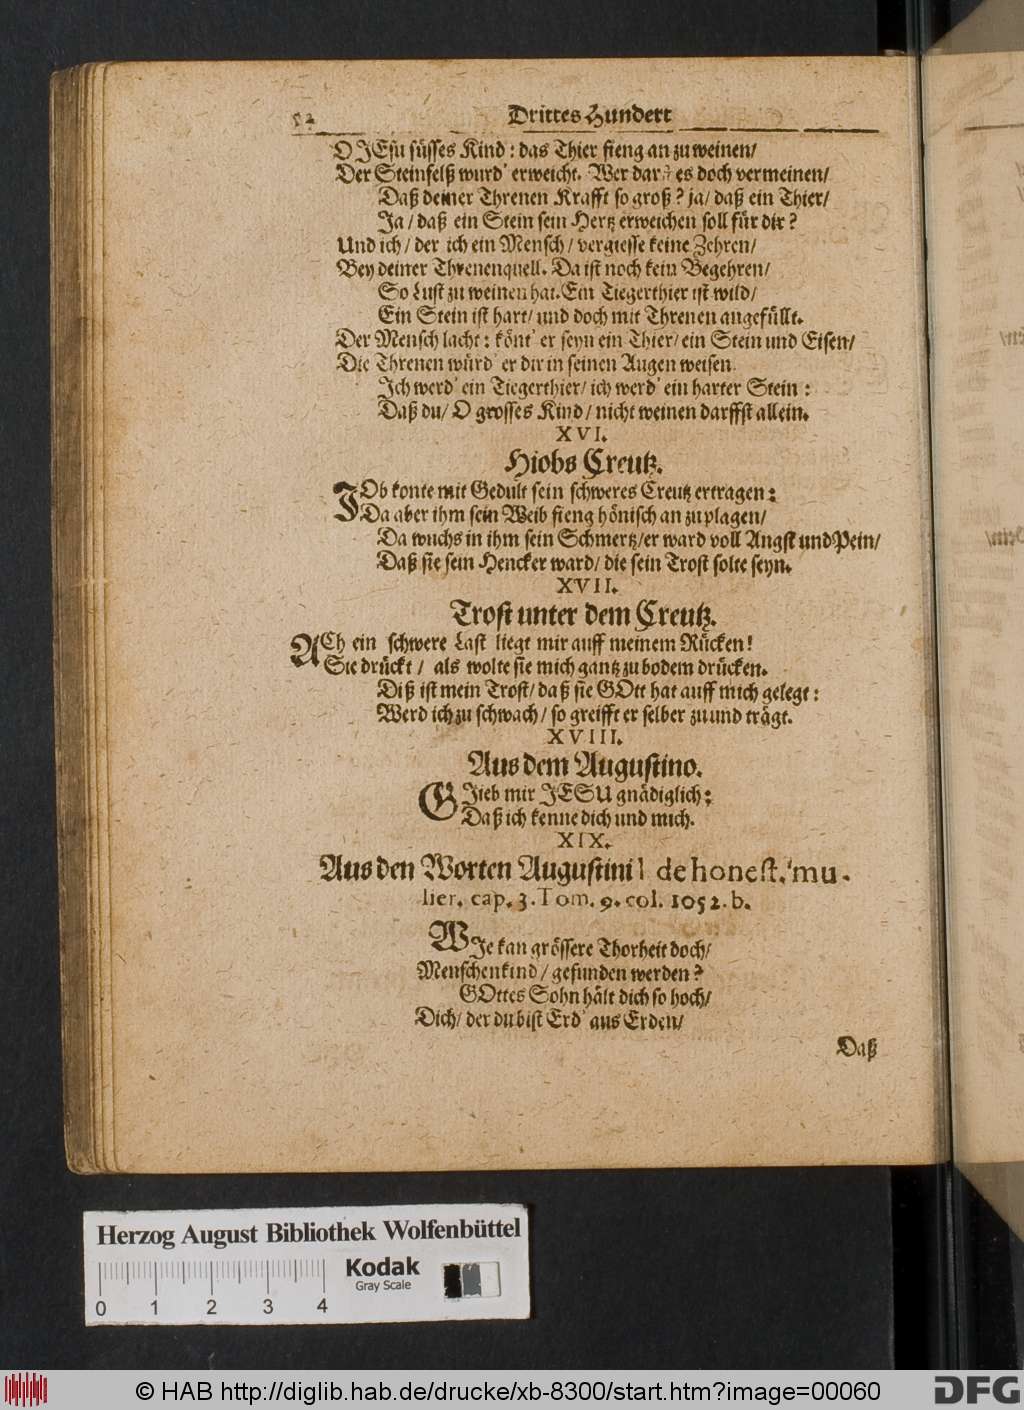 52 Drittes Hundert
O JEsu süsses Kind: das Thier fieng an zu weinen/
Der Steinfelß wurd' erweicht. Wer darf es doch vermeinen/
Daß deiner Threnen Krafft so groß? ja/ daß ein Thier/
Ja/ daß ein Stein sein Hertz erweichen soll für dir?
Und ich/ der ich ein Mensch/ vergiesse keine Zehren/
Bey deiner Threnenquell. Da ist noch kein Begehren/
So Lust zu weinen hat. Ein Tiegerthier ist wild/
Ein Stein ist hart/ und doch mit Threnen angefüllt.
Der Mensch lacht: könt' er seyn ein Thier/ ein Stein und Eisen/
Die Threnen würd' er dir in seinen Augen weisen.
Ich werd' ein Tiegerthier/ ich werd' ein harter Stein:
Daß du/ O grosses Kind/ nicht weinen darffst allein.
XVI.
Hiobs Creutz.
JOb konte mit Gedult sein schweres Creutz ertragen:
Da aber ihm sein Weib fieng hönisch an zu plagen/
Da wuchs in ihm sein Schmertz/ er ward voll Angst und Pein/
Daß sie sein Hencker ward/ die sein Trost solte seyn.
XVII.
Trost unter dem Creutz.
ACh ein schwere Last liegt mir auff meinem Rücken!
Sie drückt/ als wolte sie mich gantz zu bodem drücken.
Diß ist mein Trost/ daß sie GOtt hat auff mich gelegt:
Werd ich zu schwach/ so greifft er selber zu und trägt.
XVIII.
Aus dem Augustino.
GIeb mir JESU gnädiglich:
Daß ich kenne dich und mich.
XIX.
Aus den Worten Augustini l de honest. mu-
lier. cap. 3. Tom. 9. col. 1052. b.
WIe kan grössere Thorheit doch/
Menschenkind/ gefunden werden?
GOttes Sohn hält dich so hoch/
Dich/ der du bist Erd' aus Erden/
Daß
Herzog August Bibliothek Wolfenbüttel
Kodak
Gray Scale
0 1 2 3 4
© HAB http://diglib.hab.de/drucke/xb-8300/start.htm?image=00060
DFG